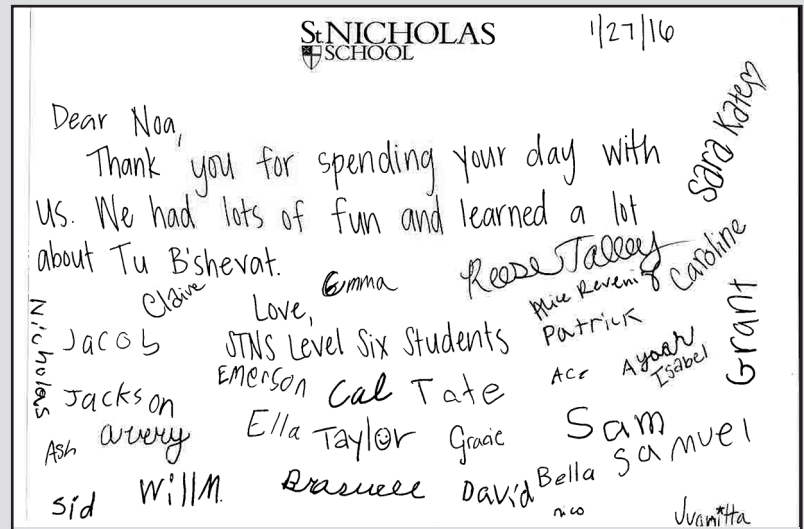 St. NICHOLAS
SCHOOL
1/27/16
Dear Noa,
Thank you for spending your day with
us. We had lots of fun and learned a lot
about Tu B'shevat.
Love,
STNS Level Six Students
Sara Kate
Claire
Emma
Reese Talley
Caroline
Nicholas
Jacob
Patrick
Grant
Emerson
Cal
Tate
Ace
Isabel
Jackson
Ash
avery
Ella
Taylor
Gracie
Sam
Samuel
Sid
Will M.
Braswell
David
Bella
nico
Juanitta